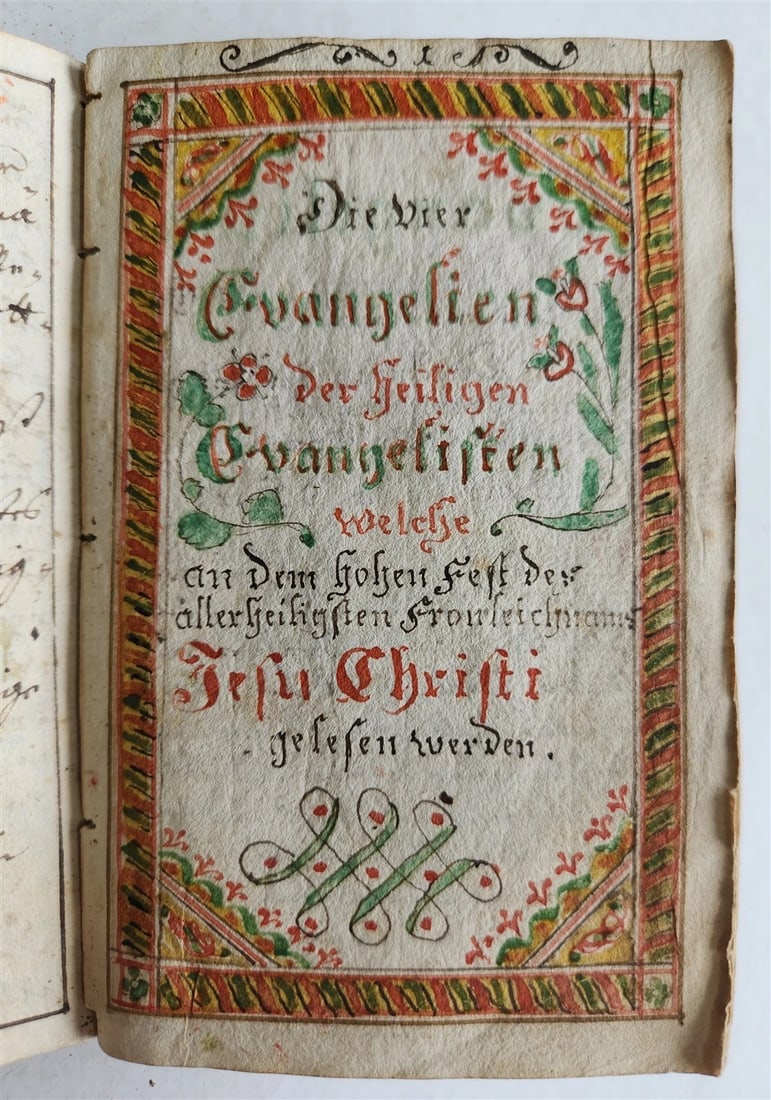 Die vier
Evangelien
der heiligen
Evangelisten
welche
an dem hohen Fest des
allerheiligsten Fronleichnams
Jesu Christi
gelesen werden.